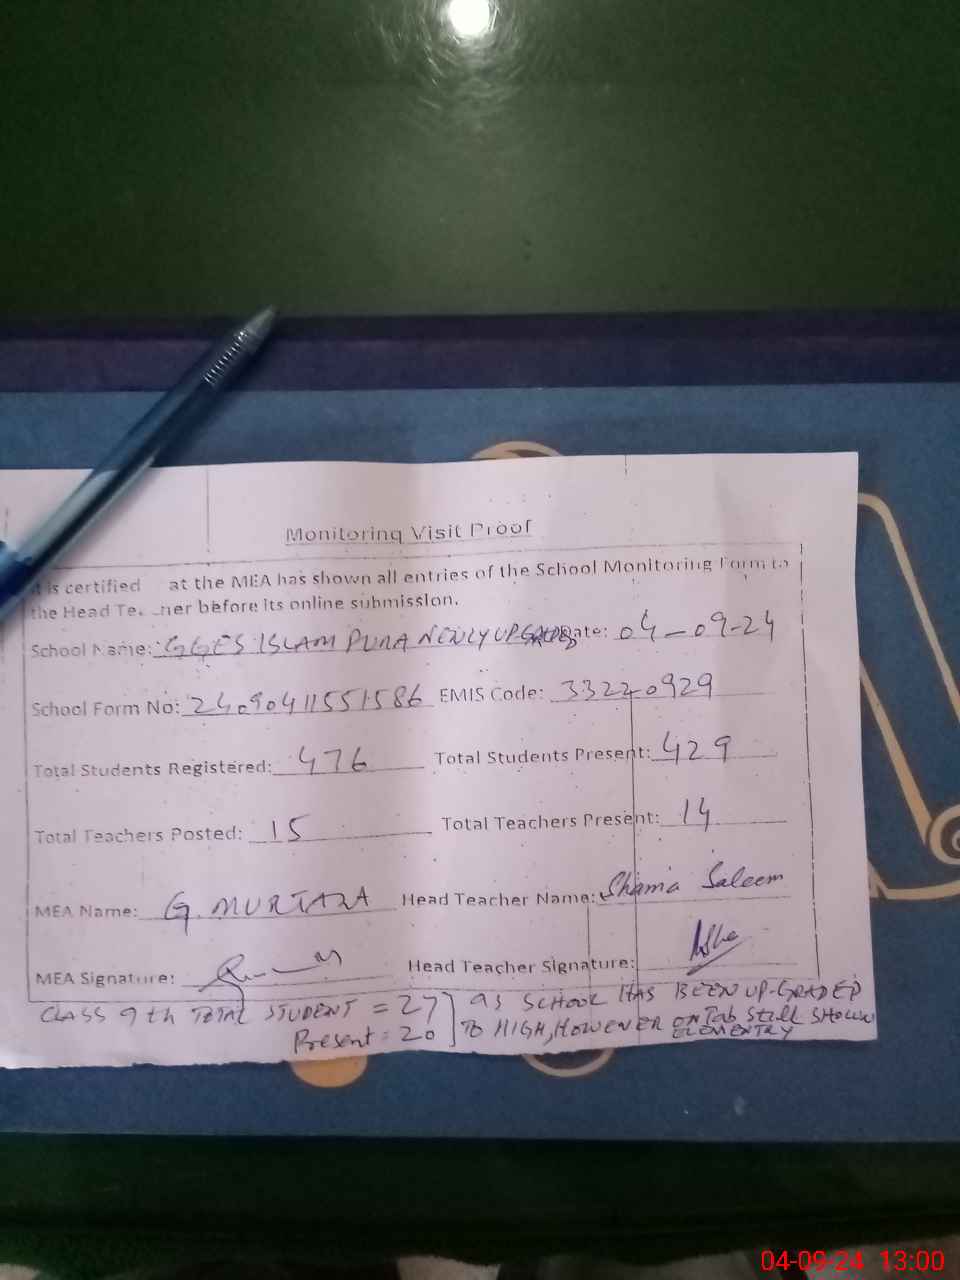 Monitoring Visit Proof
It is certified at the MEA has shown all entries of the School Monitoring Form to
the Head Te ner before its online submission.
School Name: GGES ISLAM PURA NEWLY UPGRADED Date: 04-09-24
School Form No: 2409041155 1586 EMIS Code: 33220929
Total Students Registered: 476 Total Students Present: 429
Total Teachers Posted: 15 Total Teachers Present: 14
MEA Name: G. MURTAZA Head Teacher Name: Shama Saleem
MEA Signature: Head Teacher Signature:
CLASS 9th TOTAL STUDENT = 27 ] as SCHOOL HAS BEEN UP-GRADED
Present = 20 ] TO HIGH, HOWEVER ON Tab Still SHOWN
ELEMENTRY
04-09-24 13:00